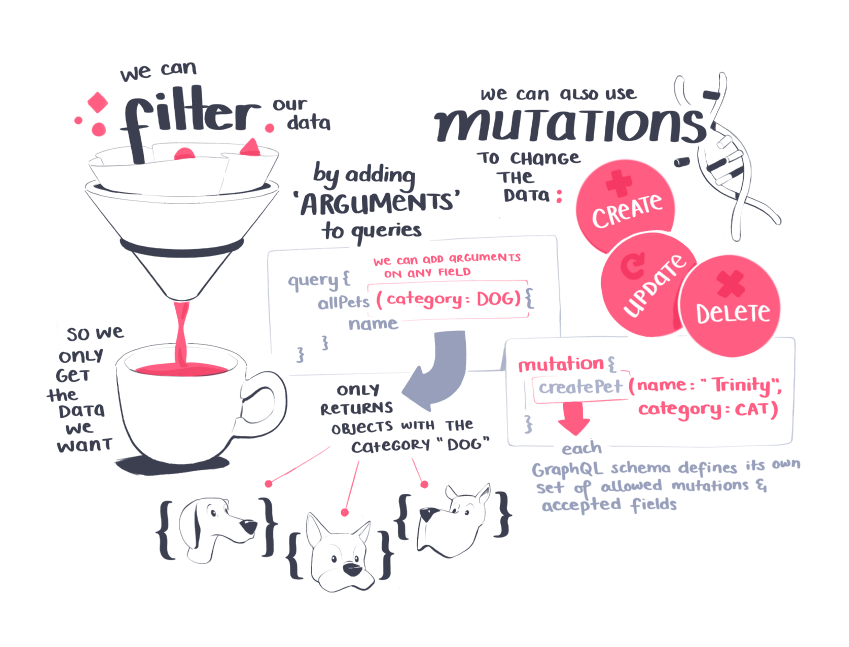 we can
filter our
data
by adding
'ARGUMENTS'
to queries
we can add arguments
on any field
query {
allPets (category: DOG) {
name
}
}
so we
only
get
the
data
we
want
only
returns
objects with the
category "DOG"
{ }
{ }
{ }
we can also use
mutations
to change
the
data:
CREATE
UPDATE
DELETE
mutation {
createPet (name: "Trinity",
category: CAT)
}
each
GraphQL schema defines its own
set of allowed mutations &
accepted fields